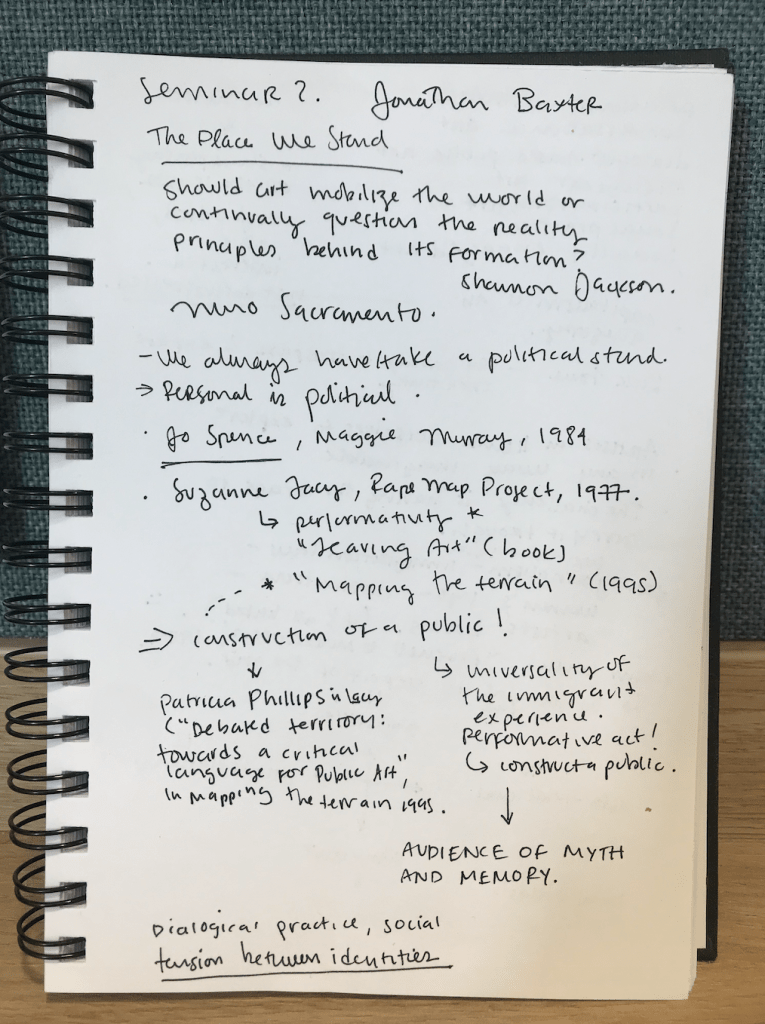 Seminar 2. Jonathan Baxter
The Place We Stand
Should art mobilize the world or
continually question the reality
principles behind its formation?
Shannon Jackson.
Nuno Sacramento.
- We always have/take a political stand.
→ Personal is political.
· Jo Spence, Maggie Murray, 1984
· Suzanne Lacy, Rape Map Project, 1977.
↳ performativity *
"Leaving Art" (book)
--- * "Mapping the terrain" (1995)
⇒ construction of a public!
↓
Patricia Phillips in Lacy
("Debated territory:
towards a critical
language for Public Art",
in Mapping the terrain 1995.
↳ universality of
the immigrant
experience.
performative act!
↳ construct a public.
↓
AUDIENCE OF MYTH
AND MEMORY.
Dialogical practice, social
tension between identities